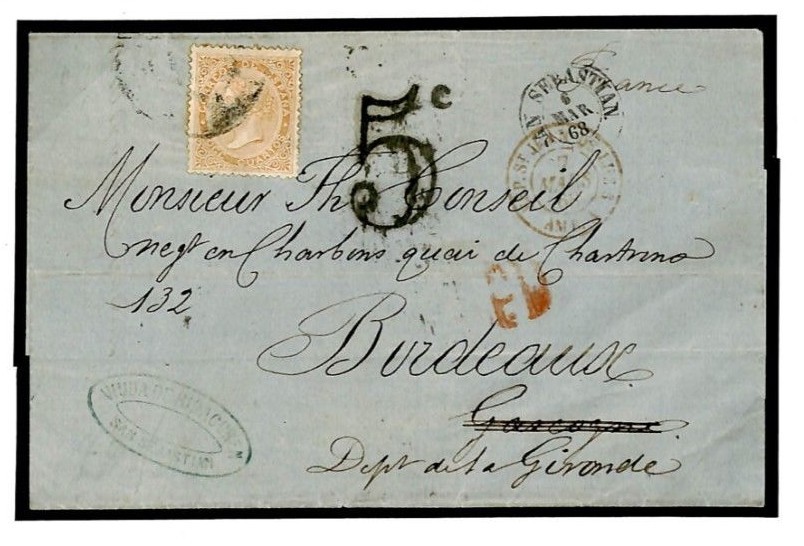 CORREOS DE ESPAÑA
France
5 c
SAN SEBASTIAN
6
MAR
68
Monsieur Th Conseil
negt en Charbons quai de Chartrons
132
Bordeaux
Gascogne
Dept de la Gironde
VIUDA DE
SAN SEBASTIAN